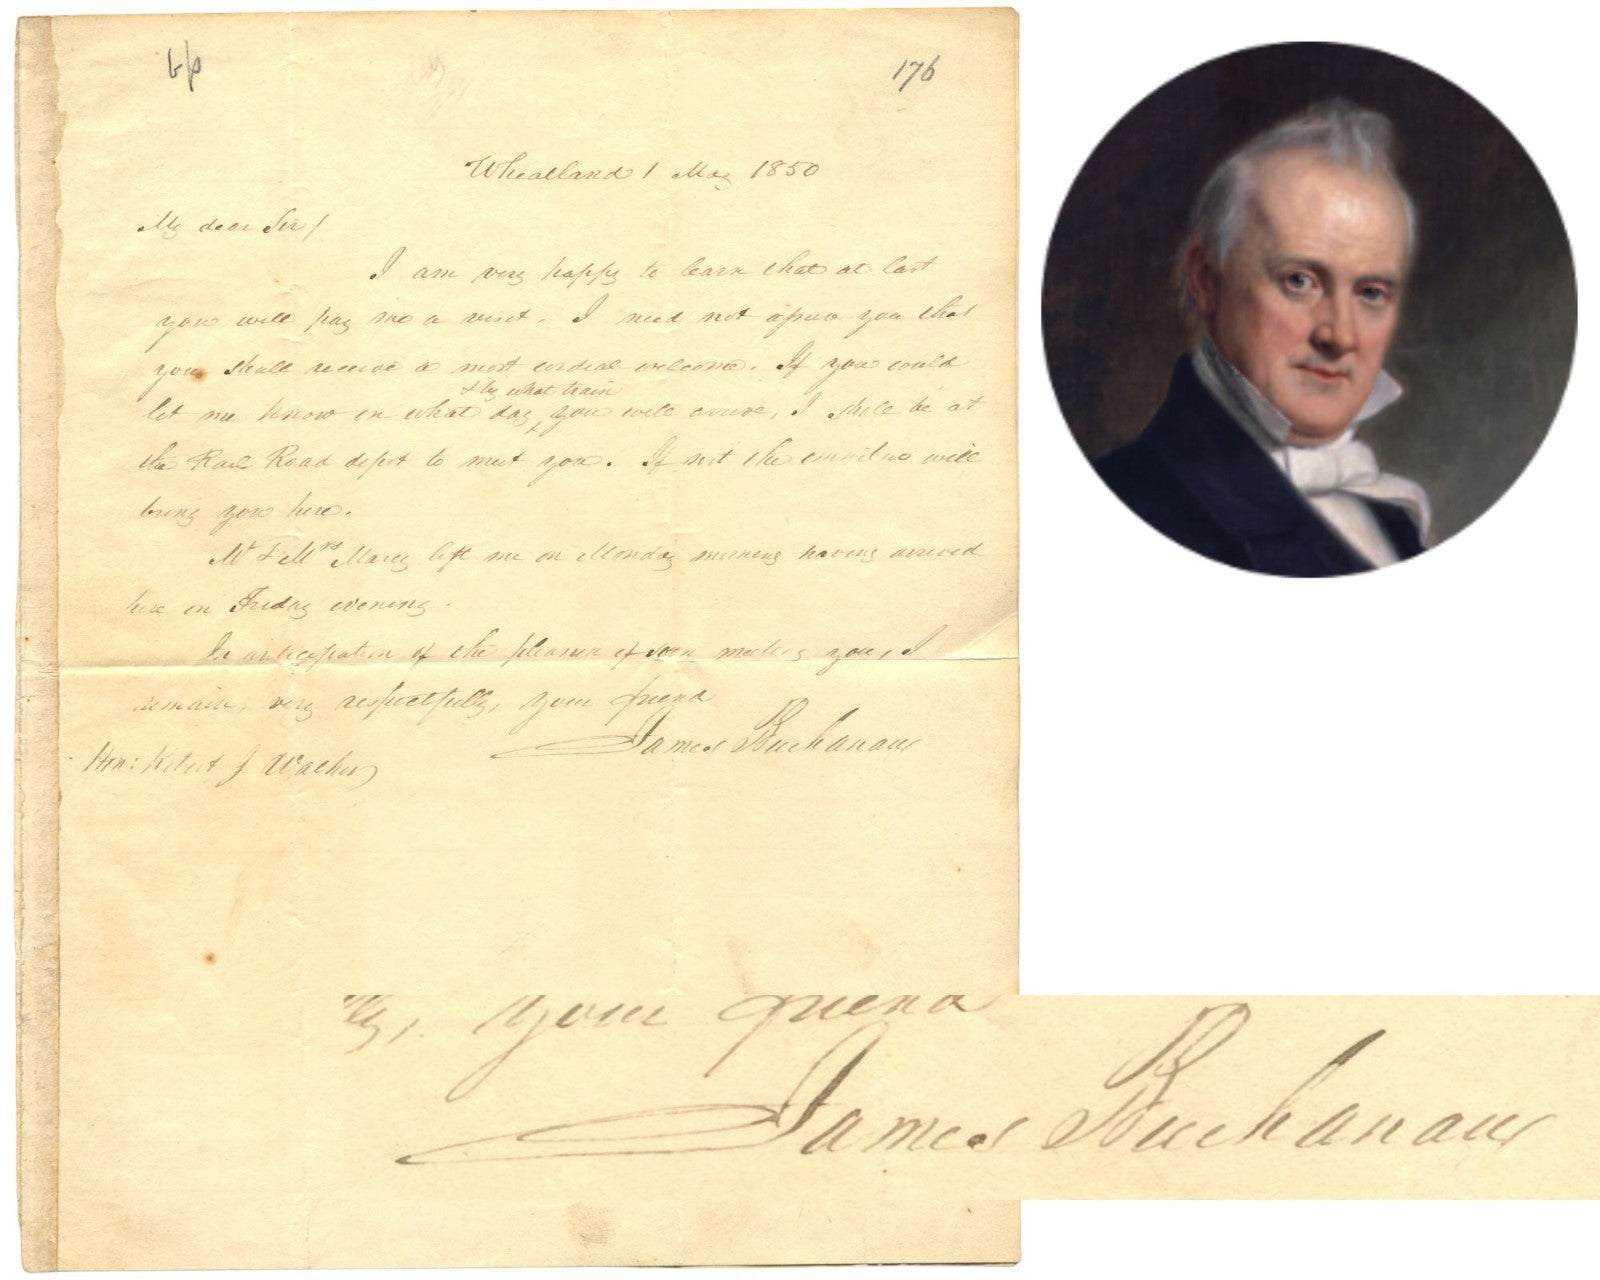 b/p
176
Wheatland 1 May 1850
My dear Sir/
I am very happy to learn that at last
you will pay me a visit. I need not assure you that
you shall receive a most cordial welcome. If you could
& by what train
let me know on what day ^ you will arrive, I shall be at
the Rail Road depot to meet you. If not the omnibus will
bring you here.
Mr & Mrs Marcy left me on Monday morning having arrived
here on Friday evening.
In anticipation of the pleasure of soon meeting you, I
remain, very respectfully, your friend
James Buchanan
Hon: Robert J Walker
lly, your friend
James Buchanan